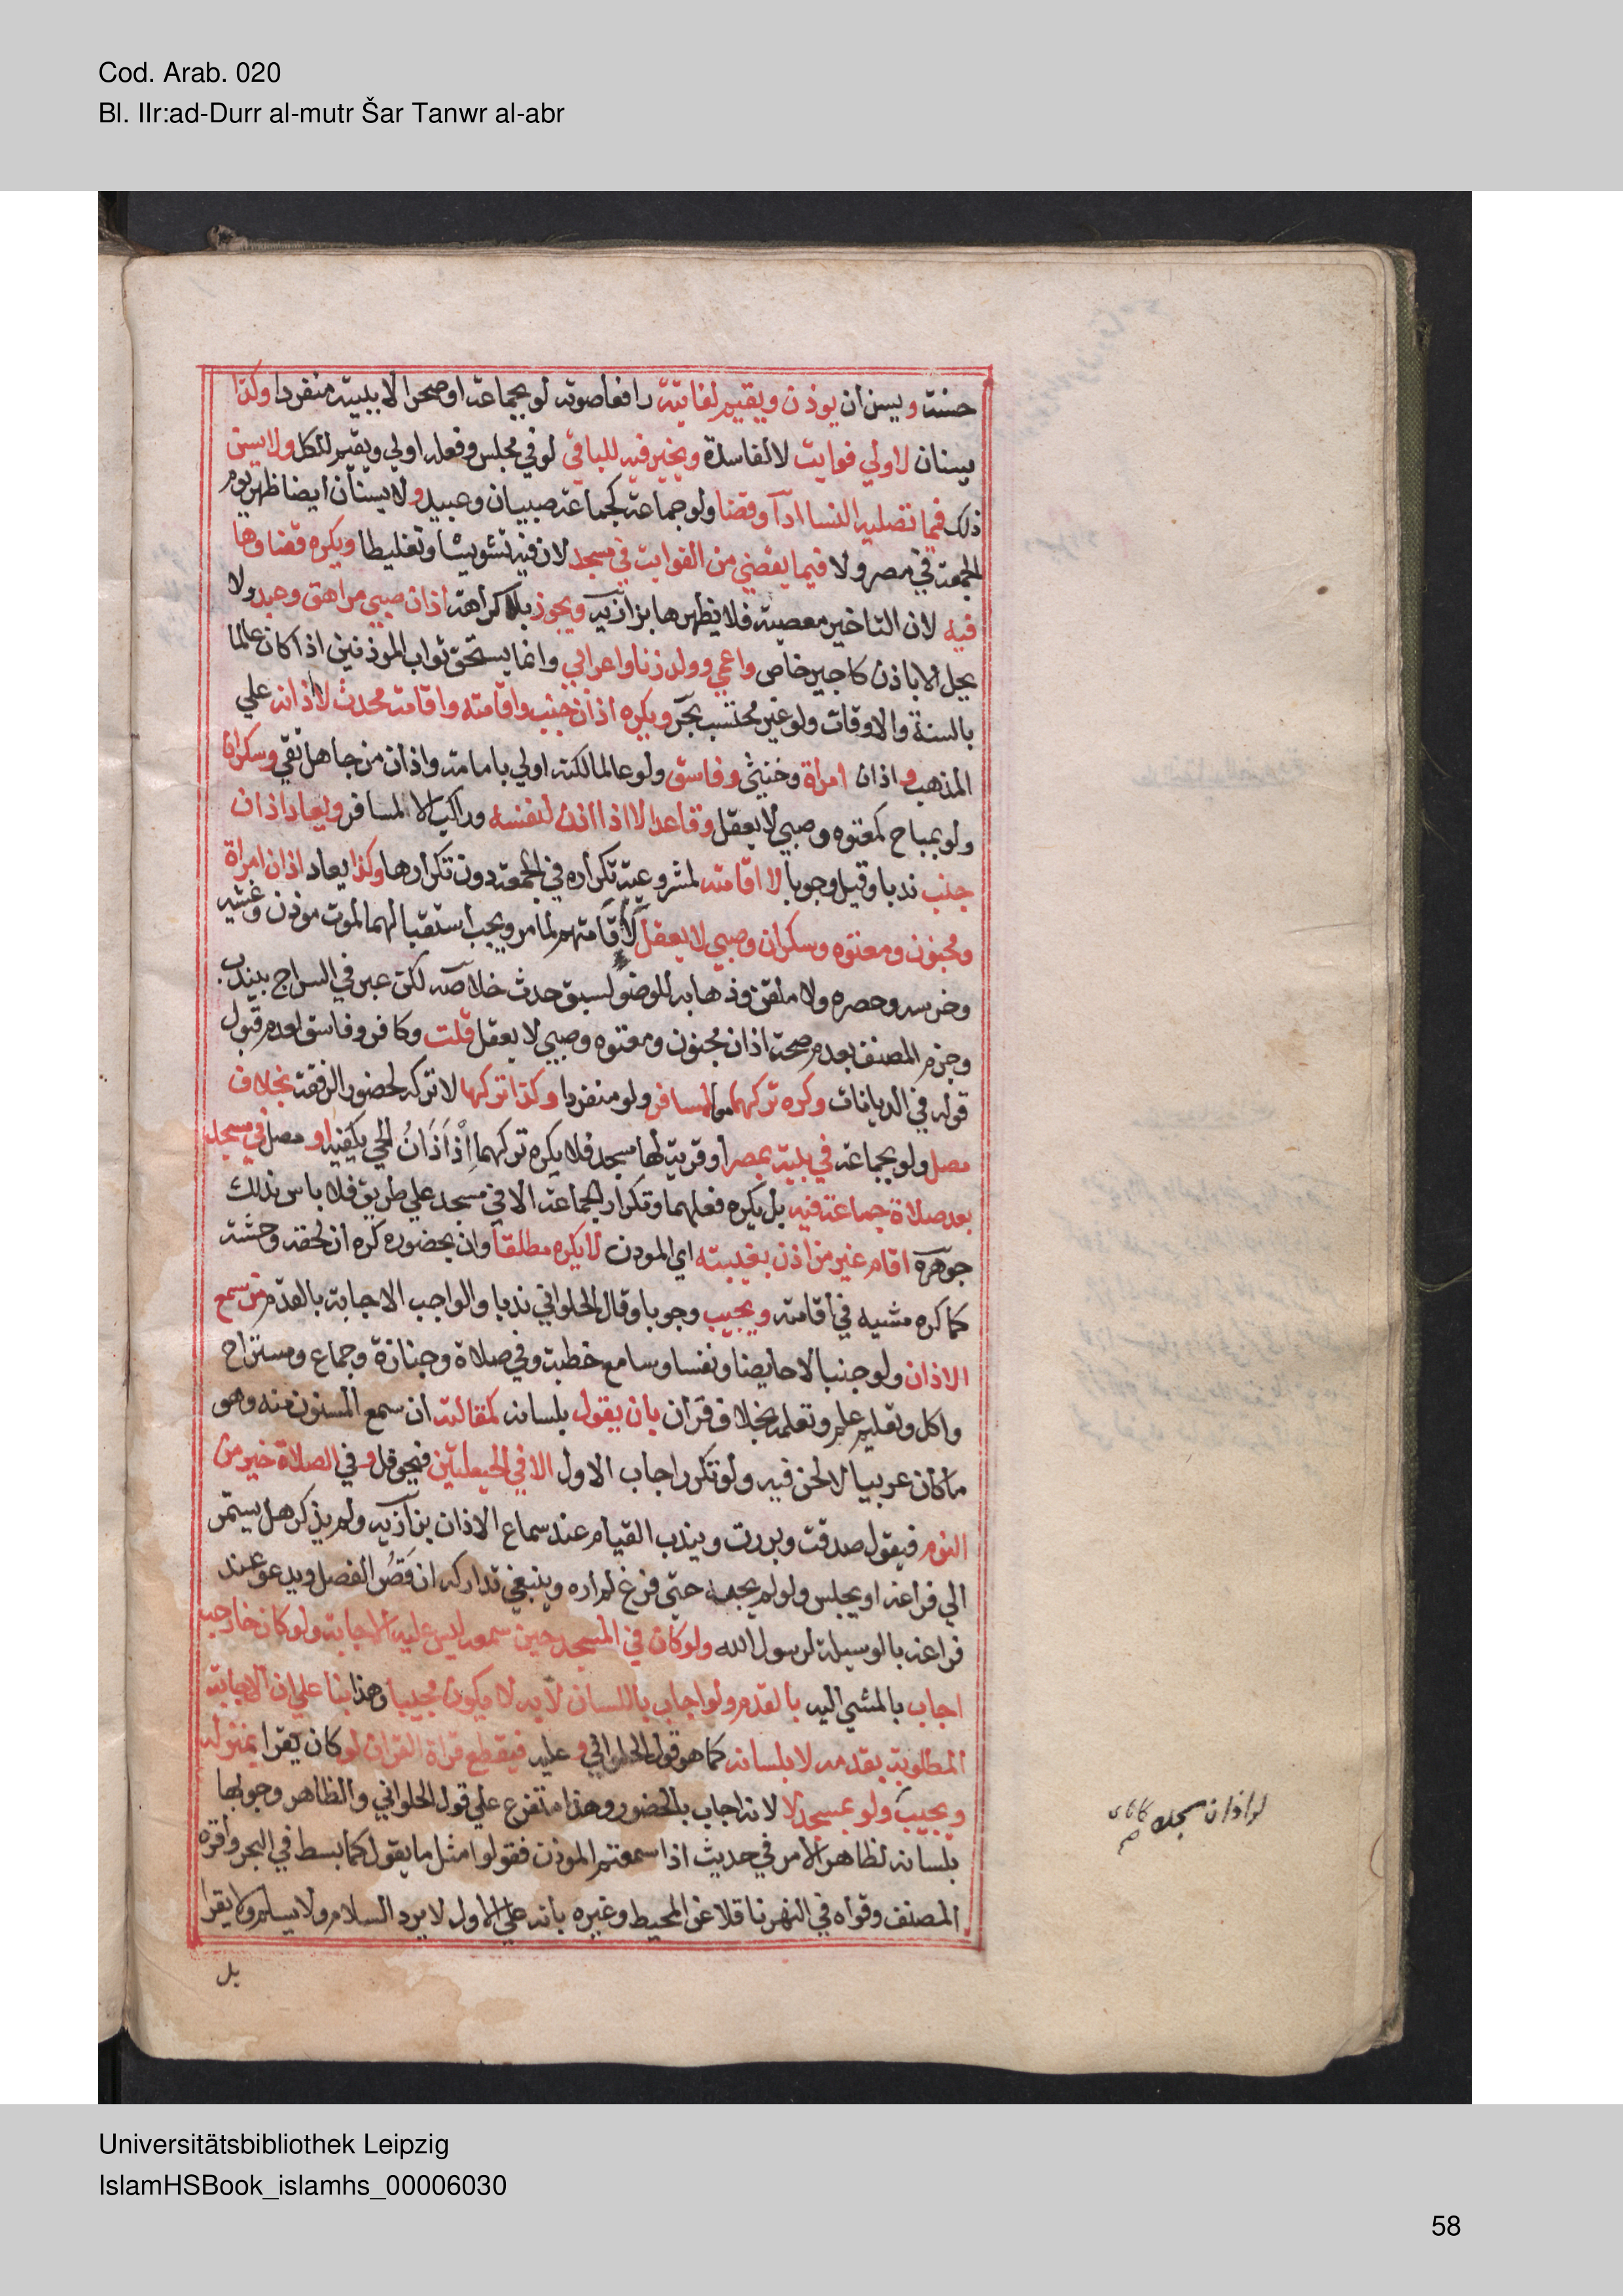 Cod. Arab. 020
Bl. IIr:ad-Durr al-mutr Šar Tanwr al-abr
حسنة ويسن ان يوذن ويقيم لفايتة رافعا صوته لو بجماعة او صحرا لا ببيته منفردا وكذا
يسنان لاولي فوايت لا لفاسدة ويخير فيه للباقي لو في مجلس وفعله اولي ويقيم للكل ولا يسن
ذلك فيما تصليه النسا ادآ وقضا ولو جماعة كجماعة صبيان وعبيد ولا يسنان ايضا لظهر يوم
الجمعة في مصر ولا فيما يقضي من الفوايت في مسجد لان فيه تشويشا وتغليطا ويكره قضاوها
فيه لان التاخير معصية فلا يظهرها بزازيه ويجوز بلا كراهة اذان صبي مراهق وعبد ولا
يحل الا باذن كاجير خاص واعمي وولد زنا واعرابي وانما يستحق ثواب الموذنين اذا كان عالما
بالسنة والاوقات ولو غير محتسب بحر ويكره اذان جنب واقامته واقامة محدث لا اذانه علي
المذهب واذان امراة وخنثي وفاسق ولو عالما لكنه اولي بامامة واذان من جاهل تقي وسكران
ولو بمباح كمعتوه وصبي لا يعقل وقاعد الا اذا اذن لنفسه وراكب الا المسافر ويعاد اذان
جنب ندبا وقيل وجوبا لا اقامته لمشروعية تكراره في الجمعة دون تكرارها وكذا يعاد اذان امراة
ومجنون ومعتوه وسكران وصبي لا يعقل لا اقامتهم لما مر ويجب استقبالهما لموت موذن وغشيه
وخرسه وحصره ولا ملقن وذهابه للوضو لسبق حدث خلاصه لكن عبر في السراج بيندب
وجزم المصنف بعدم صحة اذان مجنون ومعتوه وصبي لا يعقل قلت وكافر وفاسق لعدم قبول
قوله في الديانات وكره تركهما لمسافر ولو منفردا وكذا تركها لا تركه لحضور الرفقة بخلاف
مصل ولو بجماعة في بيته بمصر او قرية لها مسجد فلا يكره تركهما إذ أَذَانُ الحي يكفيه او مصل في مسجد
بعد صلاة جماعة فيه بل يكره فعلهما وتكرار الجماعة الا في مسجد علي طريق فلا باس بذلك
جوهرة اقام غير من اذن بغيبته اي الموذن لا يكره مطلقا وان بحضوره كره ان لحقه وحشة
كما كره مشيه في اقامته ويجيب وجوبا وقال الحلواني ندبا والواجب الاجابة بالقدم من سمع
الاذان ولو جنبا لا حايضا ونفسا وسامع خطبة وفي صلاة وجنازة وجماع ومستراح
واكل وتعليم علم وتعلمه بخلاف قران بان يقول بلسانه كمقالته ان سمع المسنون منه وهو
ما كان عربيا لا لحن فيه ولو تكرر اجاب الاول الا في الحيعلتين فيحوقل وفي الصلاة خير من
النوم فيقول صدقت وبررت ويندب القيام عند سماع الاذان بزازيه ولم يذكر هل يستمر
الي فراغه او يجلس ولو لم يجبه حتي فرغ لم اره وينبغي تداركه ان قَصُر الفصل ويدعو عند
فراغه بالوسيلة لرسول الله ولو كان في المسجد حين سمعه ليس عليه الاجابة ولو كان خارجه
اجاب بالمشي اليه بالقدم ولو اجاب باللسان لا به لا يكون مجيبا وهذا بنا علي ان الاجابة
المطلوبة بقدمه لا بلسانه كما هو قول الحلواني وعليه فيقطع قراة القران لو كان يقرا بمنزله
ويجيب ولو بمسجد لا لانه اجاب بالحضور وهذا متفرع علي قول الحلواني والظاهر وجوبها
بلسانه لظاهر الامر في حديث اذا سمعتم الموذن فقولوا مثل ما يقول كما بسط في البحر واقره
المصنف وقواه في النهر ناقلا عن المحيط وغيره بانه علي الاول لا يرد السلام ولا يسلم ولا يقرا
بل
لو اذان مسجده
Universitätsbibliothek Leipzig
IslamHSBook_islamhs_00006030
58